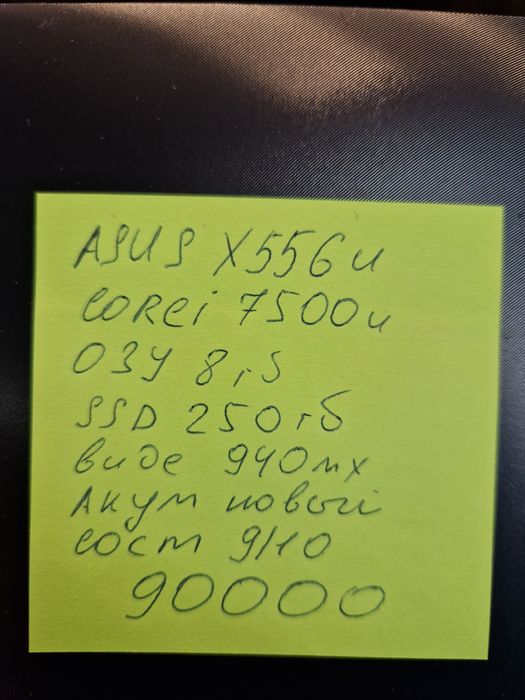 ASUS X556u
corei 7500u
ОЗУ 8гб
SSD 250гб
виде 940мх
Акум новый
сост 9/10
90000